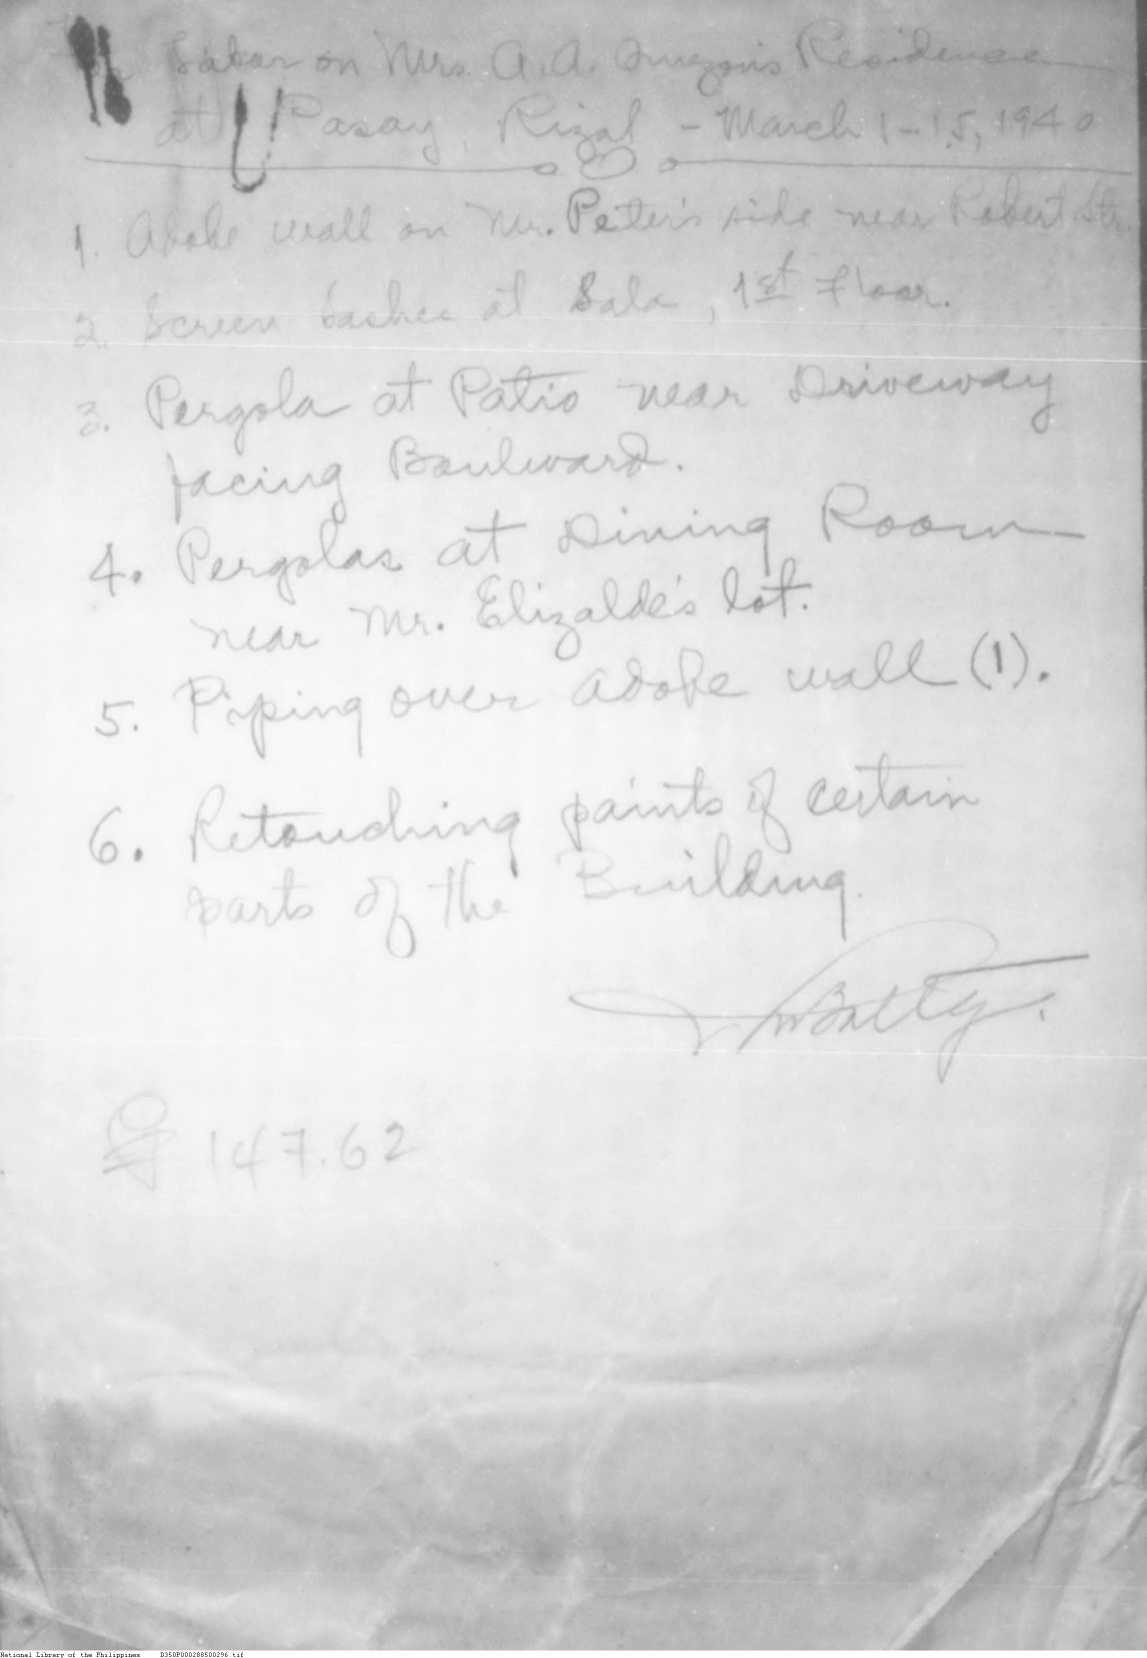 Labor on Mrs. A.A. Quezon's Residence
at Pasay, Rizal - March 1-15, 1940
1. Adobe wall on Mr. Peter's side near Robert Str.
2. Screen sashes at Sala, 1st Floor.
3. Pergola at Patio near Driveway
facing Boulward.
4. Pergolas at Dining Room
near Mr. Elizalde's lot.
5. Piping over adobe wall (1).
6. Retouching paints of certain
parts of the Building.
₱ 147.62
National Library of the Philippines D350P000288500296.tif